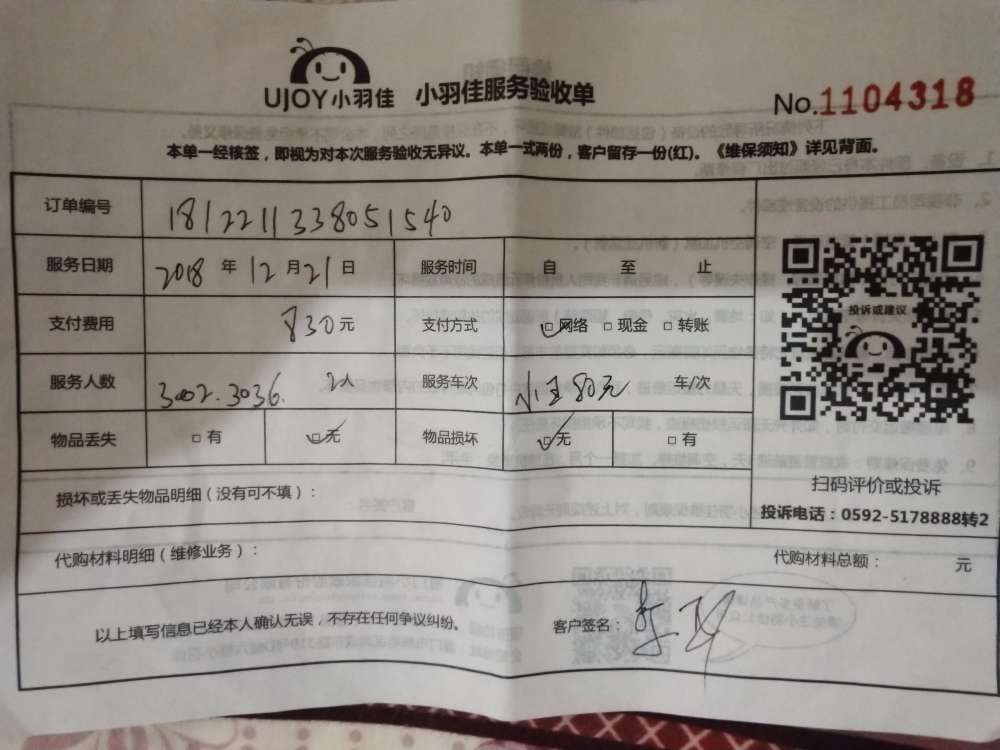 UJOY小羽佳 小羽佳服务验收单
No.1104318
本单一经核签，即视为对本次服务验收无异议。本单一式两份，客户留存一份(红)。《维保须知》详见背面。
订单编号 181221133805​1540
服务日期 2018 年 12 月 21 日 服务时间 自 至 止
支付费用 830元 支付方式 ☑网络 □现金 □转账
投诉或建议
服务人数 3002.3036. 2人 服务车次 小王80元 车/次
物品丢失 □有 ☑无 物品损坏 ☑无 □有
扫码评价或投诉
损坏或丢失物品明细（没有可不填）：
投诉电话：0592-5178888转2
代购材料明细（维修业务）： 代购材料总额： 元
以上填写信息已经本人确认无误，不存在任何争议纠纷。 客户签名：